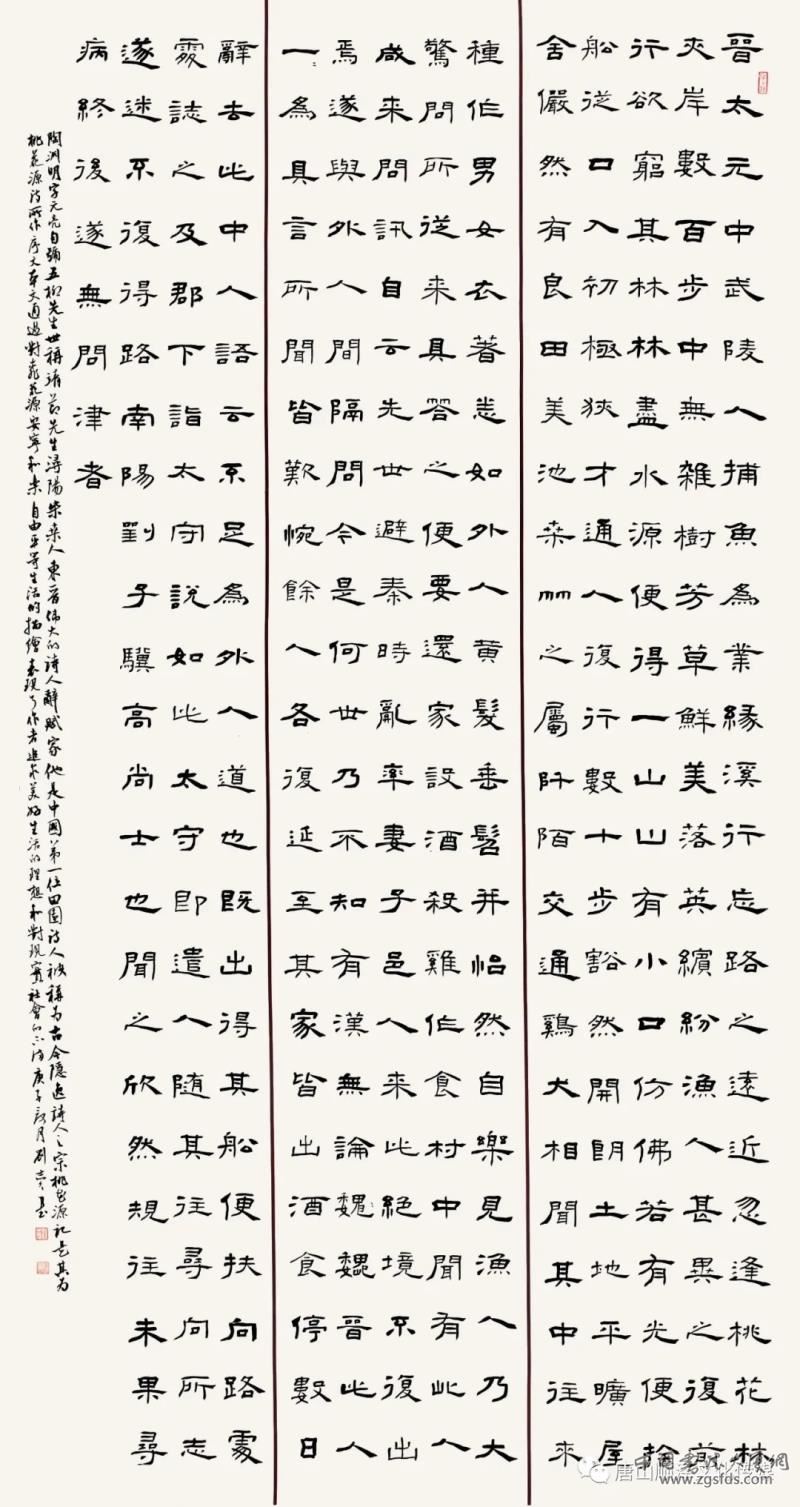 晉太元中武陵人捕魚為業緣溪行忘路之遠近忽逢桃花林
夾岸數百步中無雜樹芳草鮮美落英繽紛漁人甚異之復前
行欲窮其林林盡水源便得一山山有小口仿佛若有光便捨
船從口入初極狹才通人復行數十步豁然開朗土地平曠屋
舍儼然有良田美池桑竹之屬阡陌交通鷄犬相聞其中往來
種作男女衣著悉如外人黃髮垂髫并怡然自樂見漁人乃大
驚問所從來具答之便要還家設酒殺雞作食村中聞有此人
咸來問訊自云先世避秦時亂率妻子邑人來此絕境不復出
焉遂與外人間隔問今是何世乃不知有漢無論魏魏晉此人
一一為具言所聞皆歎惋餘人各復延至其家皆出酒食停數日
辭去此中人語云不足為外人道也既出得其船便扶向路處
處誌之及郡下詣太守說如此太守即遣人随其往尋向所志
遂迷不復得路南陽劉子驥高尚士也聞之欣然規往未果尋
病終後遂無問津者
陶淵明字元亮自號五柳先生世稱靖節先生潯陽柴桑人東晉偉大的詩人辭賦家他是中國第一位田園詩人被稱為古今隱逸詩人之宗桃花源記是其為
桃花源詩所作序文本文通過對桃花源安寧和樂自由平等生活的描繪表現了作者追求美好生活的理想和對現實社會的不滿庚子月劉書
唐山传媒
www.zgsfds.com